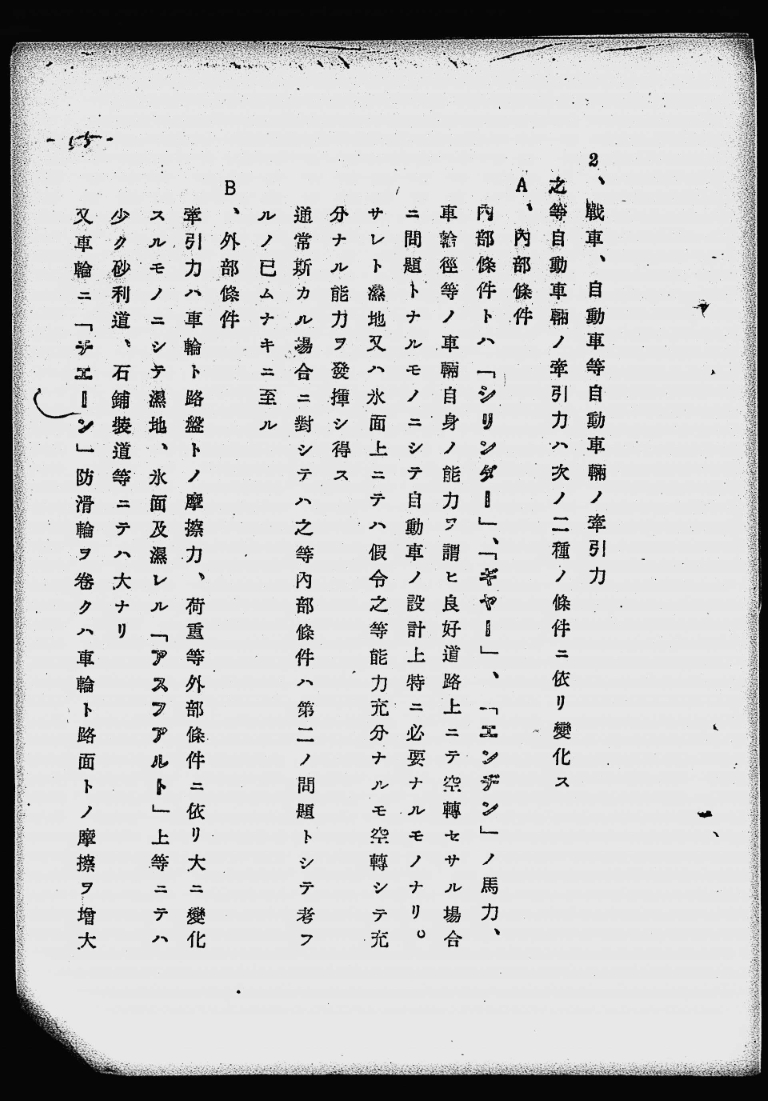 -55-
2、戰車、自動車等自動車輛ノ牽引力
之等自動車輛ノ牽引力ハ次ノ二種ノ條件ニ依リ變化ス
A、內部條件
內部條件トハ「シリンダー」、「ギヤー」、「エンヂン」ノ馬力、
車輪徑等ノ車輛自身ノ能力ヲ謂ヒ良好道路上ニテ空轉セサル場合
ニ問題トナルモノニシテ自動車ノ設計上特ニ必要ナルモノナリ。
サレト濕地又ハ氷面上ニテハ假令之等能力充分ナルモ空轉シテ充
分ナル能力ヲ發揮シ得ス
通常斯カル場合ニ對シテハ之等內部條件ハ第二ノ問題トシテ考フ
ルノ已ムナキニ至ル
B、外部條件
牽引力ハ車輪ト路盤トノ摩擦力、荷重等外部條件ニ依リ大ニ變化
スルモノニシテ濕地、氷面及濕レル「アスフアルト」上等ニテハ
少ク砂利道、石鋪裝道等ニテハ大ナリ
又車輪ニ「チエーン」防滑輪ヲ卷クハ車輪ト路面トノ摩擦ヲ增大